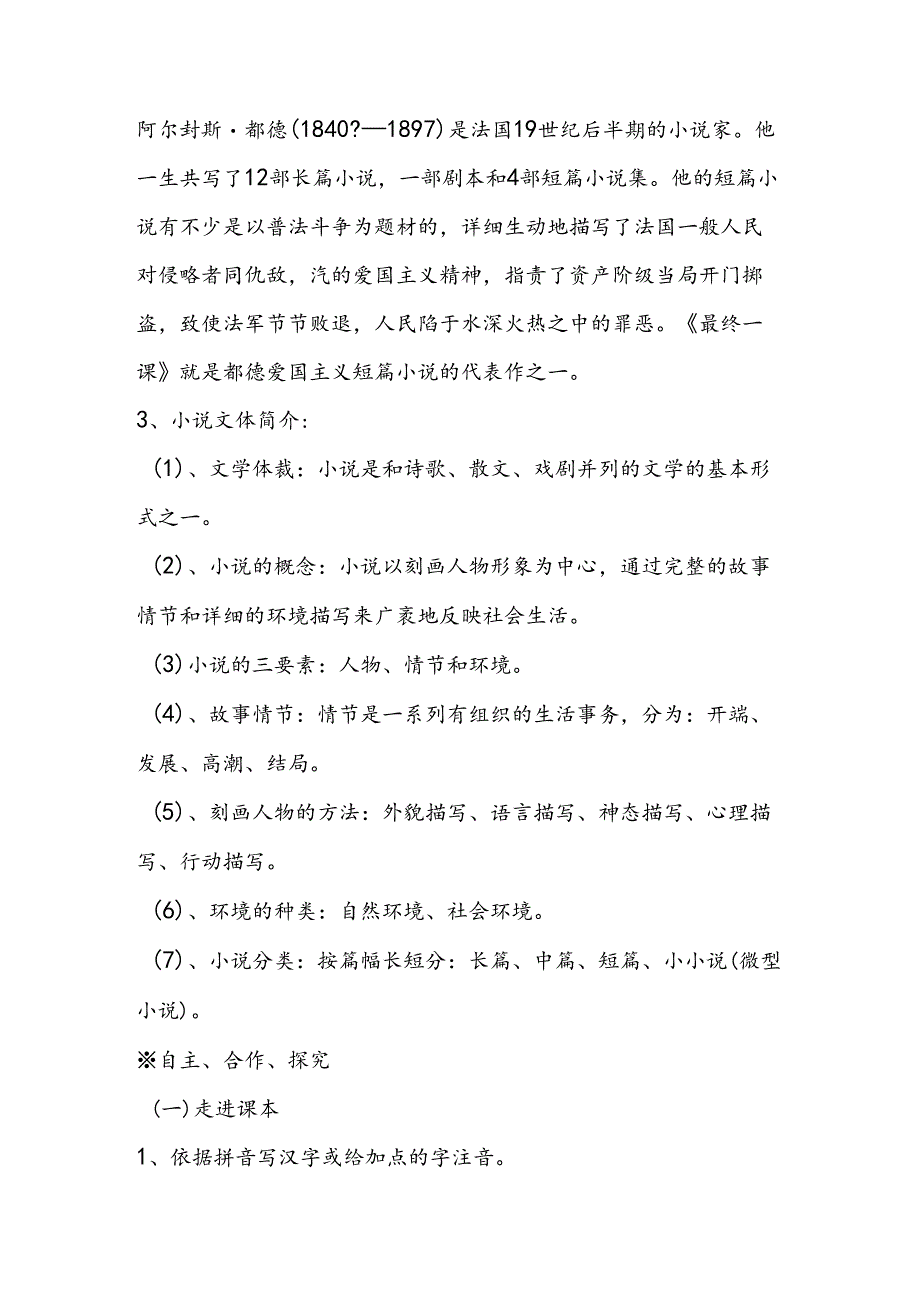 阿尔封斯·都德(1840?—1897)是法国19世纪后半期的小说家。他
一生共写了12部长篇小说，一部剧本和4部短篇小说集。他的短篇小
说有不少是以普法斗争为题材的，详细生动地描写了法国一般人民
对侵略者同仇敌，汽的爱国主义精神，指责了资产阶级当局开门掷
盗，致使法军节节败退，人民陷于水深火热之中的罪恶。《最终一
课》就是都德爱国主义短篇小说的代表作之一。
3、小说文体简介：
(1)、文学体裁：小说是和诗歌、散文、戏剧并列的文学的基本形
式之一。
(2)、小说的概念：小说以刻画人物形象为中心，通过完整的故事
情节和详细的环境描写来广袤地反映社会生活。
(3)小说的三要素：人物、情节和环境。
(4)、故事情节：情节是一系列有组织的生活事务，分为：开端、
发展、高潮、结局。
(5)、刻画人物的方法：外貌描写、语言描写、神态描写、心理描
写、行动描写。
(6)、环境的种类：自然环境、社会环境。
(7)、小说分类：按篇幅长短分：长篇、中篇、短篇、小小说(微型
小说)。
※自主、合作、探究
(一)走进课本
1、依据拼音写汉字或给加点的字注音。